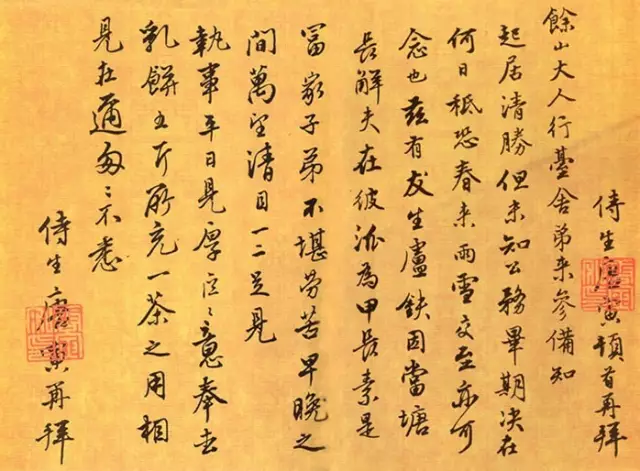 侍生唐寅頓首再拜
餘山大人行臺舍弟来參備知
起居清勝但未知公務畢期决在
何日秪恐春来雨雪交至亦可
念也兹有友生盧鈇因當塘
長解夫在彼派為甲長素是
富家子弟不堪勞苦早晚之
間萬望清目一二足見
執事平日見厚區〻意奉去
乳餅五斤所充一茶之用相
見在邇匆〻不悉
侍生唐寅再拜